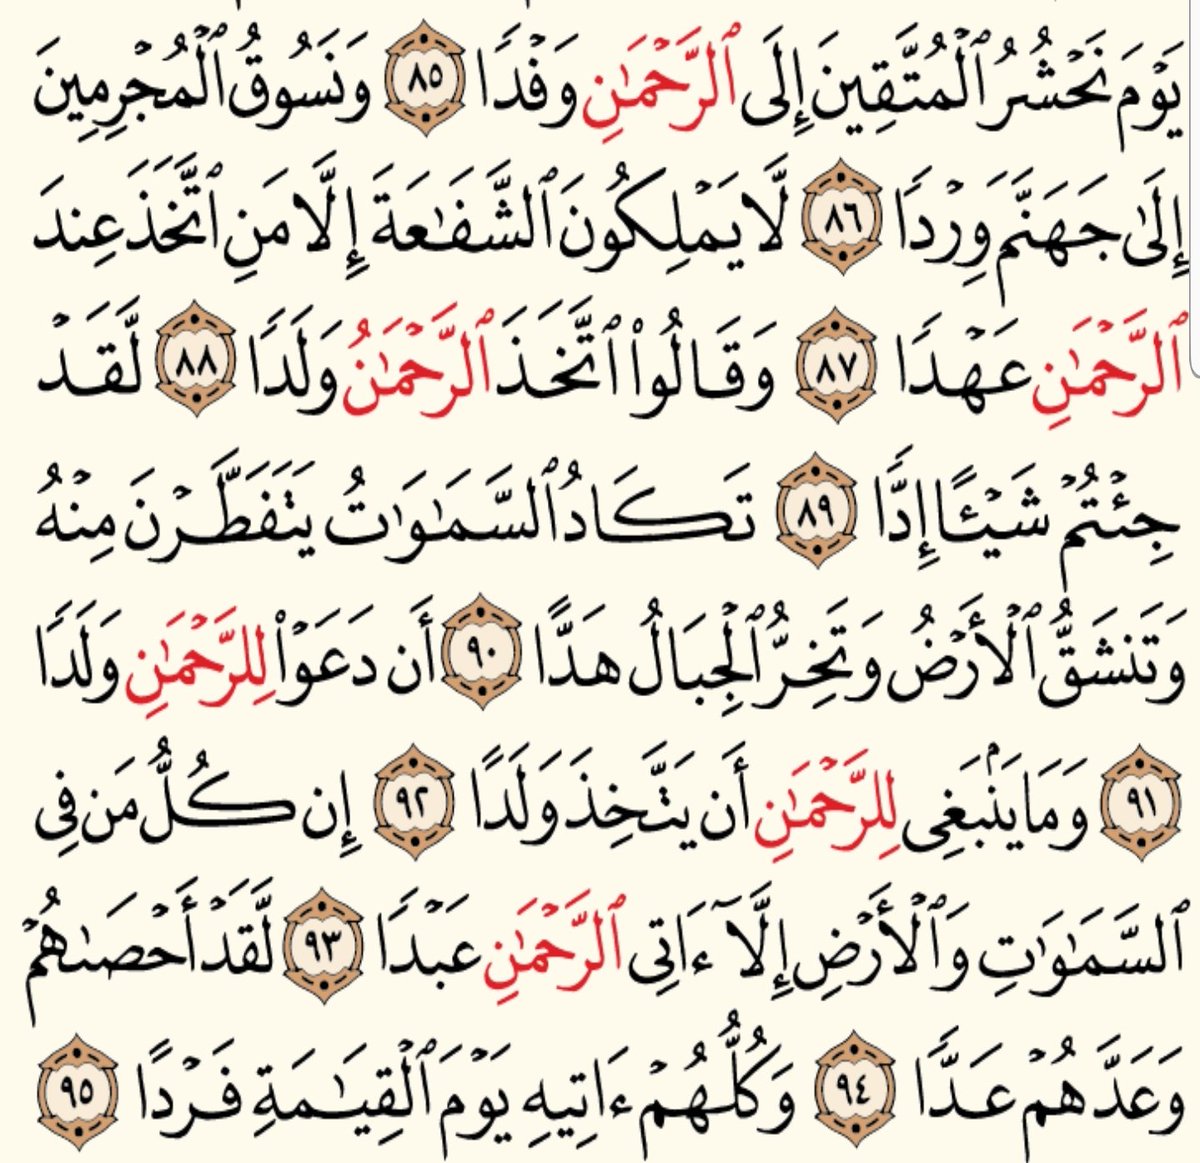 يَوْمَ نَحْشُرُ ٱلْمُتَّقِينَ إِلَى ٱلرَّحْمَٰنِ وَفْدًا ٨٥ وَنَسُوقُ ٱلْمُجْرِمِينَ
إِلَىٰ جَهَنَّمَ وِرْدًا ٨٦ لَّا يَمْلِكُونَ ٱلشَّفَٰعَةَ إِلَّا مَنِ ٱتَّخَذَ عِندَ
ٱلرَّحْمَٰنِ عَهْدًا ٨٧ وَقَالُوا۟ ٱتَّخَذَ ٱلرَّحْمَٰنُ وَلَدًا ٨٨ لَّقَدْ
جِئْتُمْ شَيْـًٔا إِدًّا ٨٩ تَكَادُ ٱلسَّمَٰوَٰتُ يَتَفَطَّرْنَ مِنْهُ
وَتَنشَقُّ ٱلْأَرْضُ وَتَخِرُّ ٱلْجِبَالُ هَدًّا ٩٠ أَن دَعَوْا۟ لِلرَّحْمَٰنِ وَلَدًا
٩١ وَمَا يَنۢبَغِى لِلرَّحْمَٰنِ أَن يَتَّخِذَ وَلَدًا ٩٢ إِن كُلُّ مَن فِى
ٱلسَّمَٰوَٰتِ وَٱلْأَرْضِ إِلَّآ ءَاتِى ٱلرَّحْمَٰنِ عَبْدًا ٩٣ لَّقَدْ أَحْصَىٰهُمْ
وَعَدَّهُمْ عَدًّا ٩٤ وَكُلُّهُمْ ءَاتِيهِ يَوْمَ ٱلْقِيَٰمَةِ فَرْدًا ٩٥